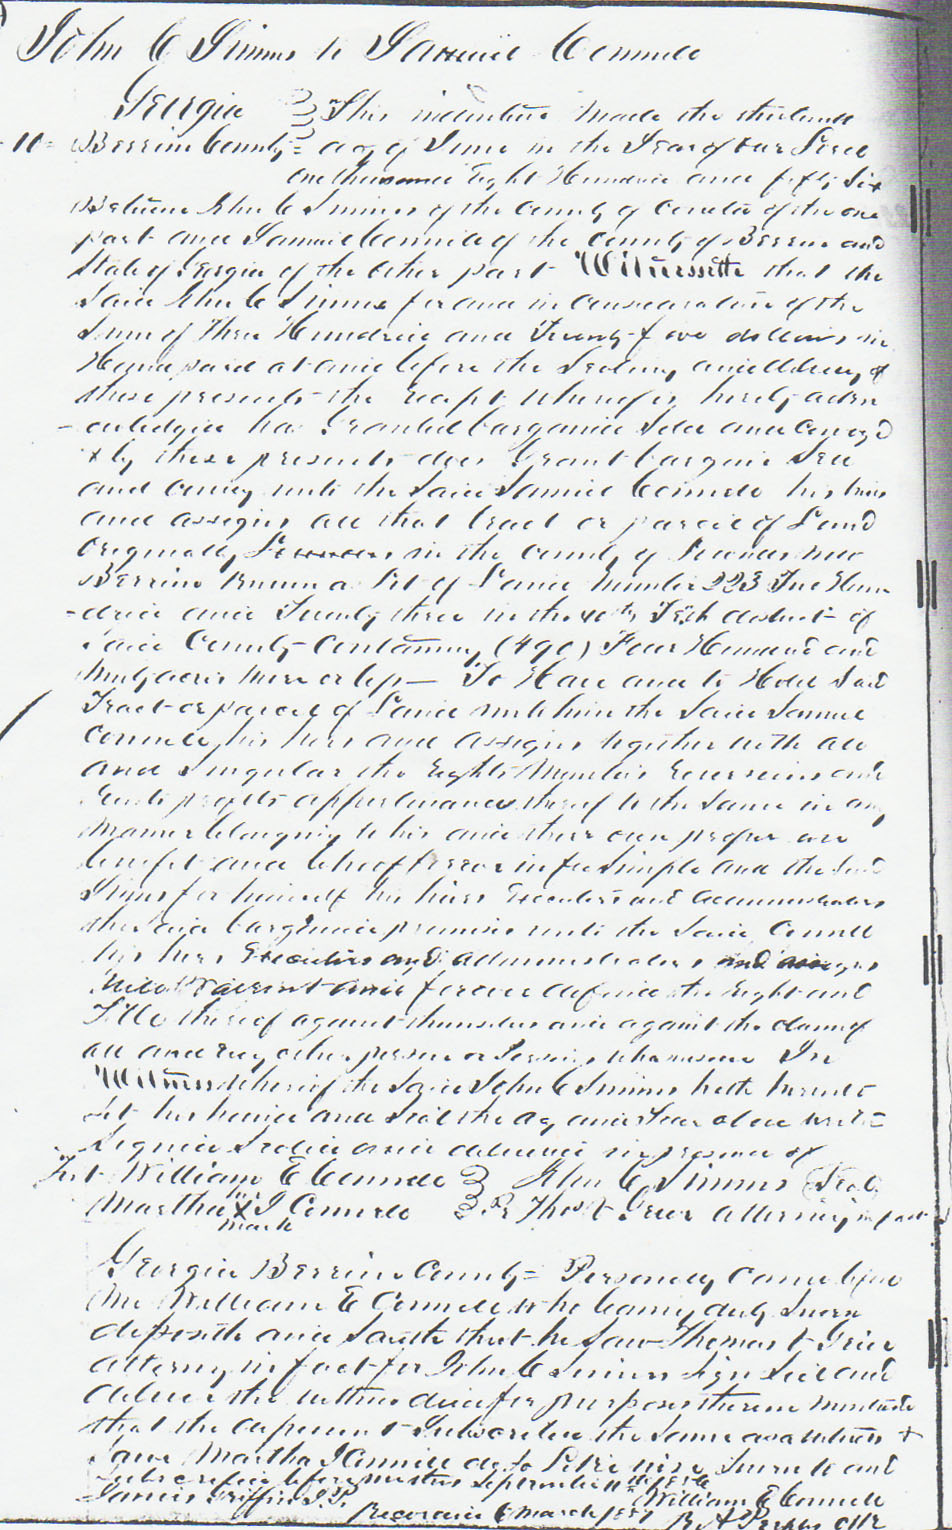 John C Simms to Samuel Connell
Georgia This indenture made the
Berrien County day of June in the Year of our Lord
one thousand Eight Hundred and fifty Six
Between John C Simms of the County of of the one
part and Samuel Connell of the County of Berrien and
State of Georgia of the other part Witnesseth that the
Said John C Simms for and in Consideration of the
Sum of Three Hundred and Twenty five dollars in
Hand paid at and before the Sealing and delivery of
these presents the receipt whereof is hereby ackn
owledged has Granted bargained Sold and Conveyd
& by these presents does Grant bargain Sell
and Convey unto the Said Samuel Connell his heirs
and assigns all that tract or parcel of Land
Originally in the County of Lowndes now
Berrien Known as Lot of Land Number 223 Two Hun
dred and Twenty three in the 10th Tenth district of
Said County Containing (490) Four Hundred and
Ninty acres more or less To Have and to Hold Said
Tract or parcel of Land unto him the Said Samuel
Connell his heirs and assigns together with all
and Singular the Rights Members and
thereof to the Same in any
manner belonging to his and their own proper use
benefit and behoof forever in fee simple and the Said
Simms for himself his heirs Executors and administrators
the Said bargained premises unto the Said Connell
his heirs Executors and administrators and assigns
Will Warrant and forever defend the Right and
Title thereof against themselves and against the claim of
all and every other person or Persons whomsoever In
Witness whereof the Said John C Simms hath hereunto
Set his hand and Seal the day and Year above writen
Signed Sealed and delivered in presence of
Test William E Connell John C Simms Seal
Martha X J Connell By Thos Grier Attorney in fact
mark
Georgia Berrien County Personally Came before
Me William E Connell who being duly Sworn
deposeth and Saith that he Saw Thomas Grier
attorney in fact for John C Simms Sign Seal and
deliver the within deed for purposes therein
that the deponent Subscribed the Same as a witness &
Saw Martha J Connell do So Likewise Sworn to and
Subscribed before me this September 11th
James Griffin J.P. William E Connell
Recorded 6 March 1857